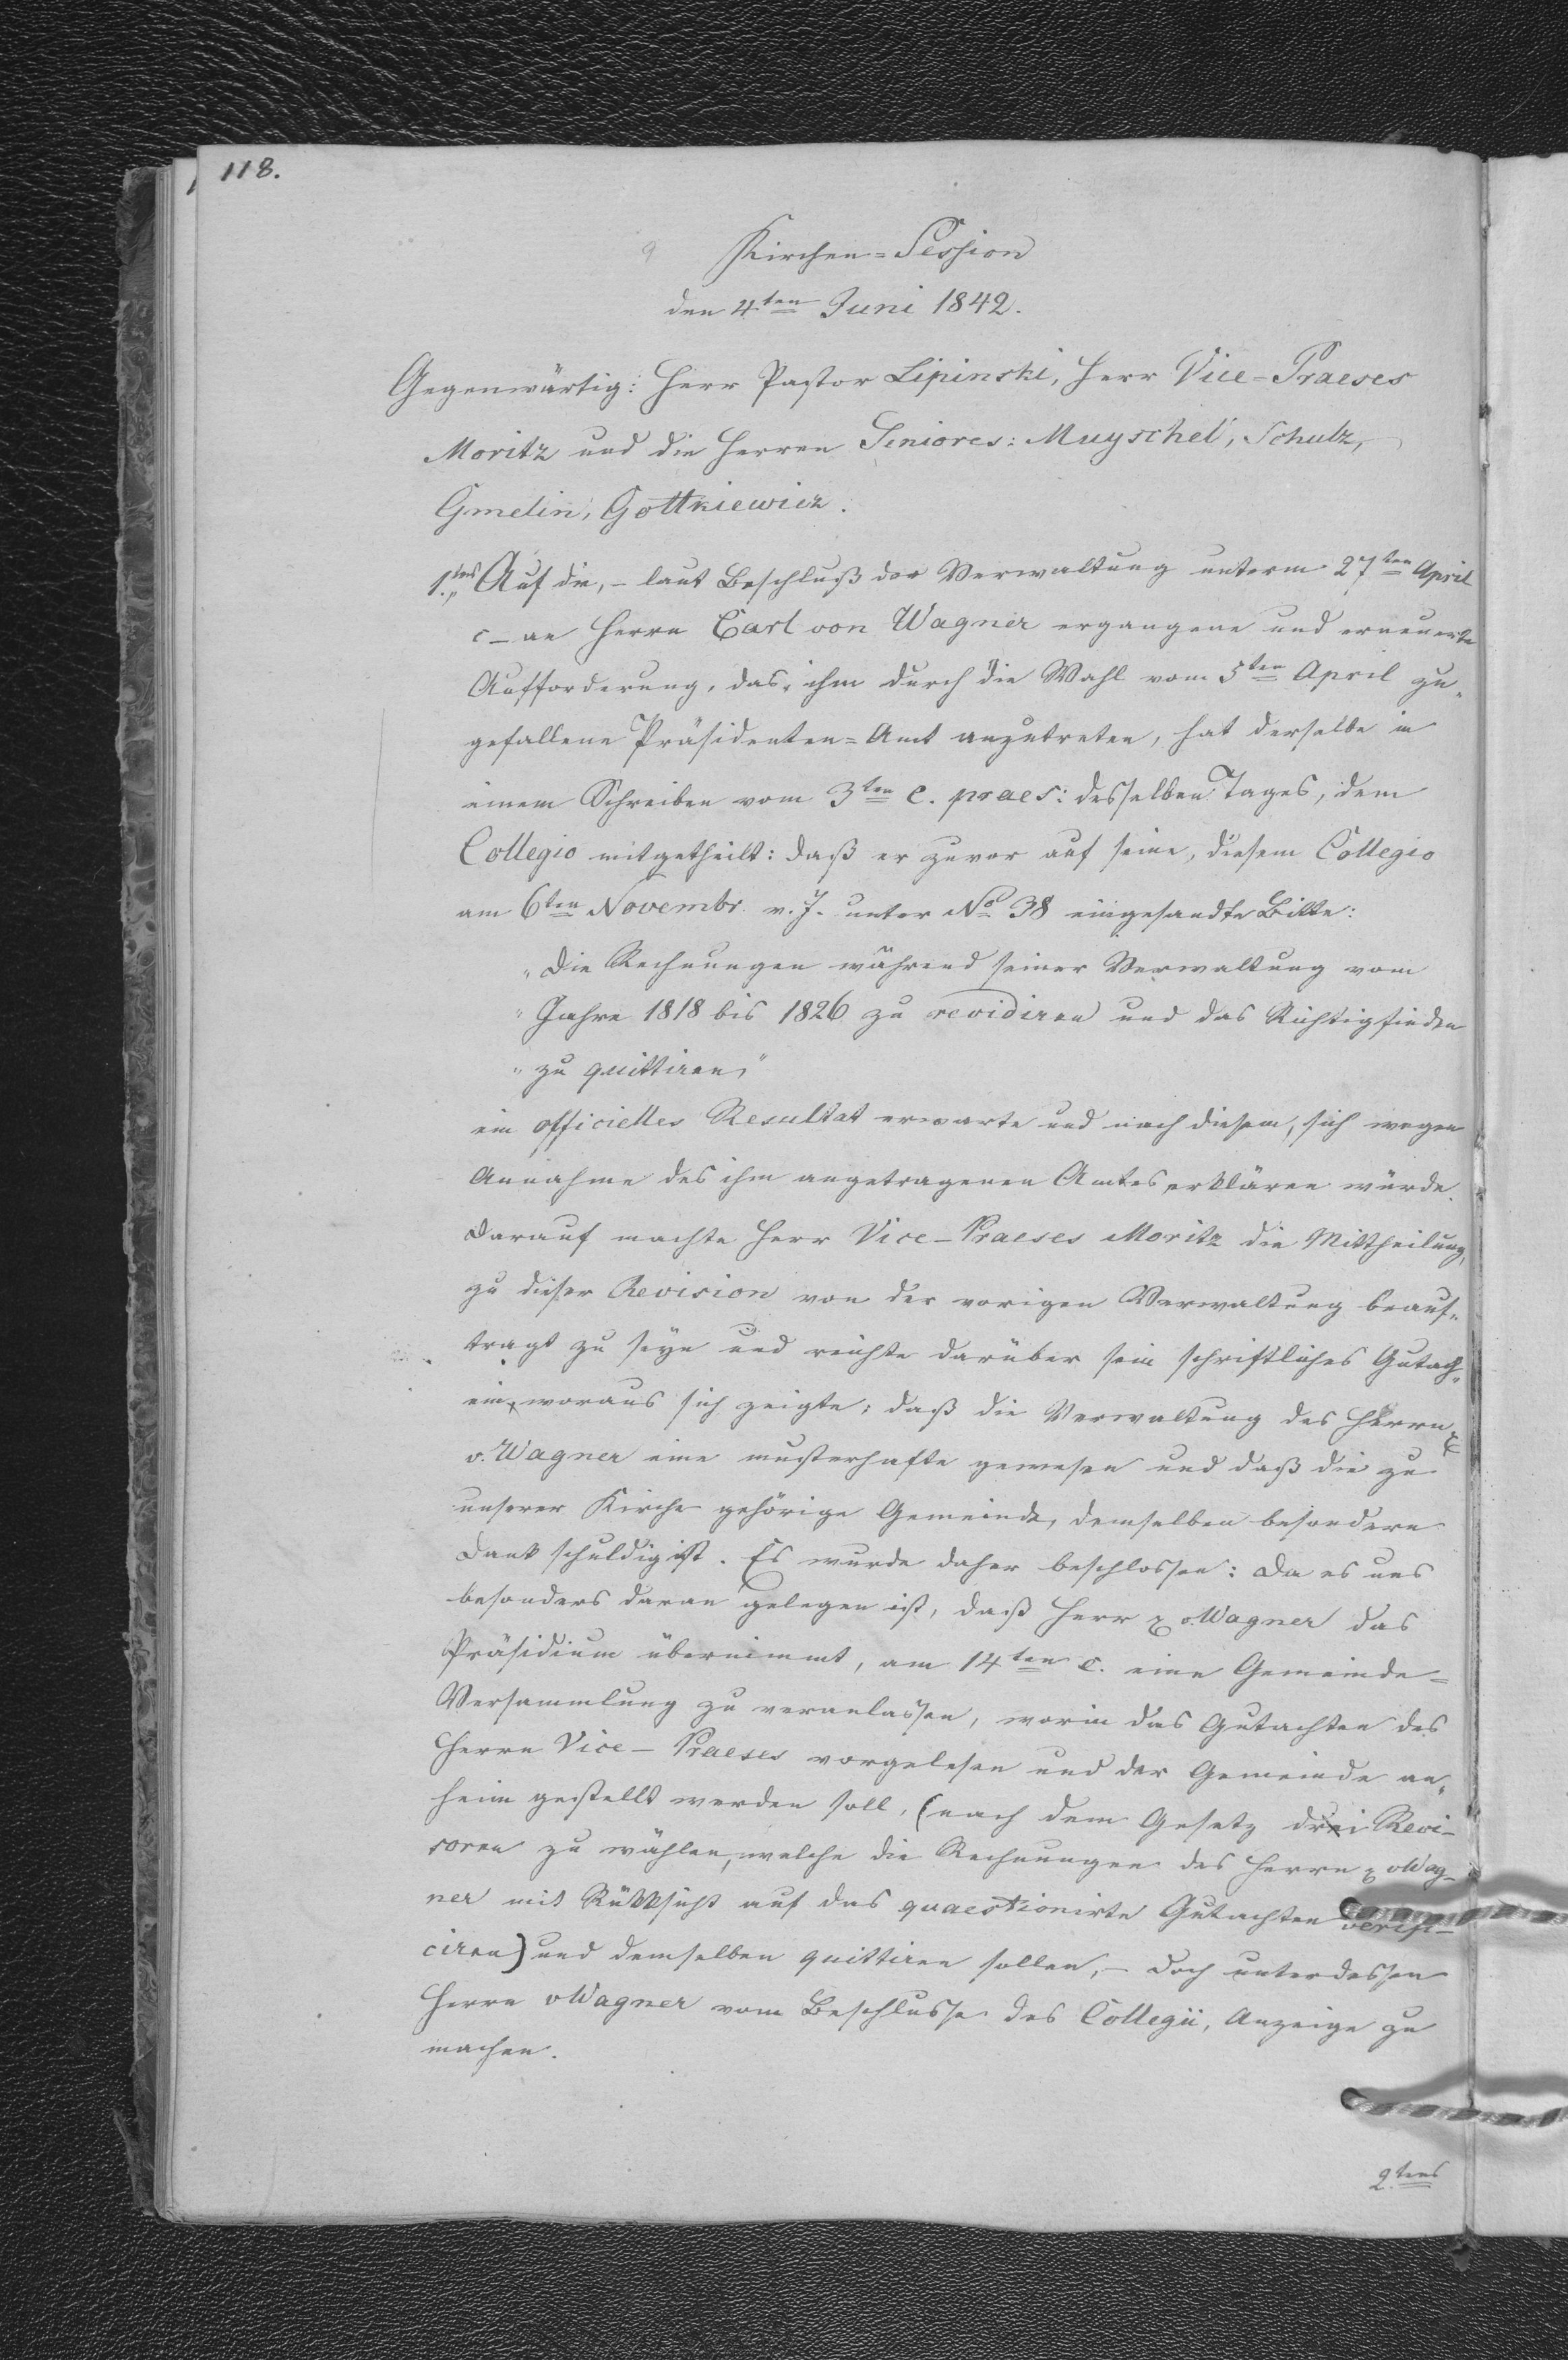 118.
Kirchen=Session
den 4ten Juni 1842.
Gegenwärtig: Herr Pastor Lipinski, Herr Vice-Praeses
Moritz und die Herren Seniores: Muyschel, Schulz,
Gmelin, Gottkiewicz.
1.tens Auf die, – laut Beschluß der Verwaltung unterm 27ten April
c – an Herrn Carl von Wagner ergangene und erneuerte
Aufforderung, das, ihm durch die Wahl vom 5ten April zu„
gefallene Präsidenten=Amt anzutreten, hat derselbe in
einem Schreiben vom 3ten c. praes: desselben Tages, dem
Collegio mitgetheilt: daß er zuvor auf seine, diesem Collegio
am 6ten Novembr. v. J. unter No 38 eingesandte Bitte:
„Die Rechnungen während seiner Verwaltung vom
„Jahre 1818 bis 1826 zu revidiren und das Richtigfinden
„zu quittiren,"
ein officielles Resultat erwarte und nach diesem, sich wegen
Annahme des ihm angetragenen Amtes erklären würde.
Darauf machte Herr Vice-Praeses Moritz die Mittheilung,
zu dieser Revision von der vorigen Verwaltung beauf„
tragt zu seyn und reichte darüber sein schriftliches Gutach„
ein, woraus sich zeigte; daß die Verwaltung des Herrn
v. Wagner eine musterhafte gewesen und daß die zu
unserer Kirche gehörige Gemeinde, demselben besondern
Dank schuldig ist. Es wurde daher beschlossen: da es uns
besonders daran gelegen ist, daß Herr v. Wagner das
Präsidium übernimmt, am 14ten c. eine Gemeinde=
Versammlung zu veranlassen, worin das Gutachten des
Herrn Vice-Praeses vorgelesen und der Gemeinde an„
heim gestellt werden soll, (nach dem Gesetz drei Revi-
soren zu wählen, welche die Rechnungen des Herrn v Wag-
ner mit Rücksicht auf das quaestionirte Gutachten verifi-
ciren) und demselben quittiren sollen, – doch unterdessen
Herrn v Wagner vom Beschlusse des Collegii, Anzeige zu
machen.
2.tens